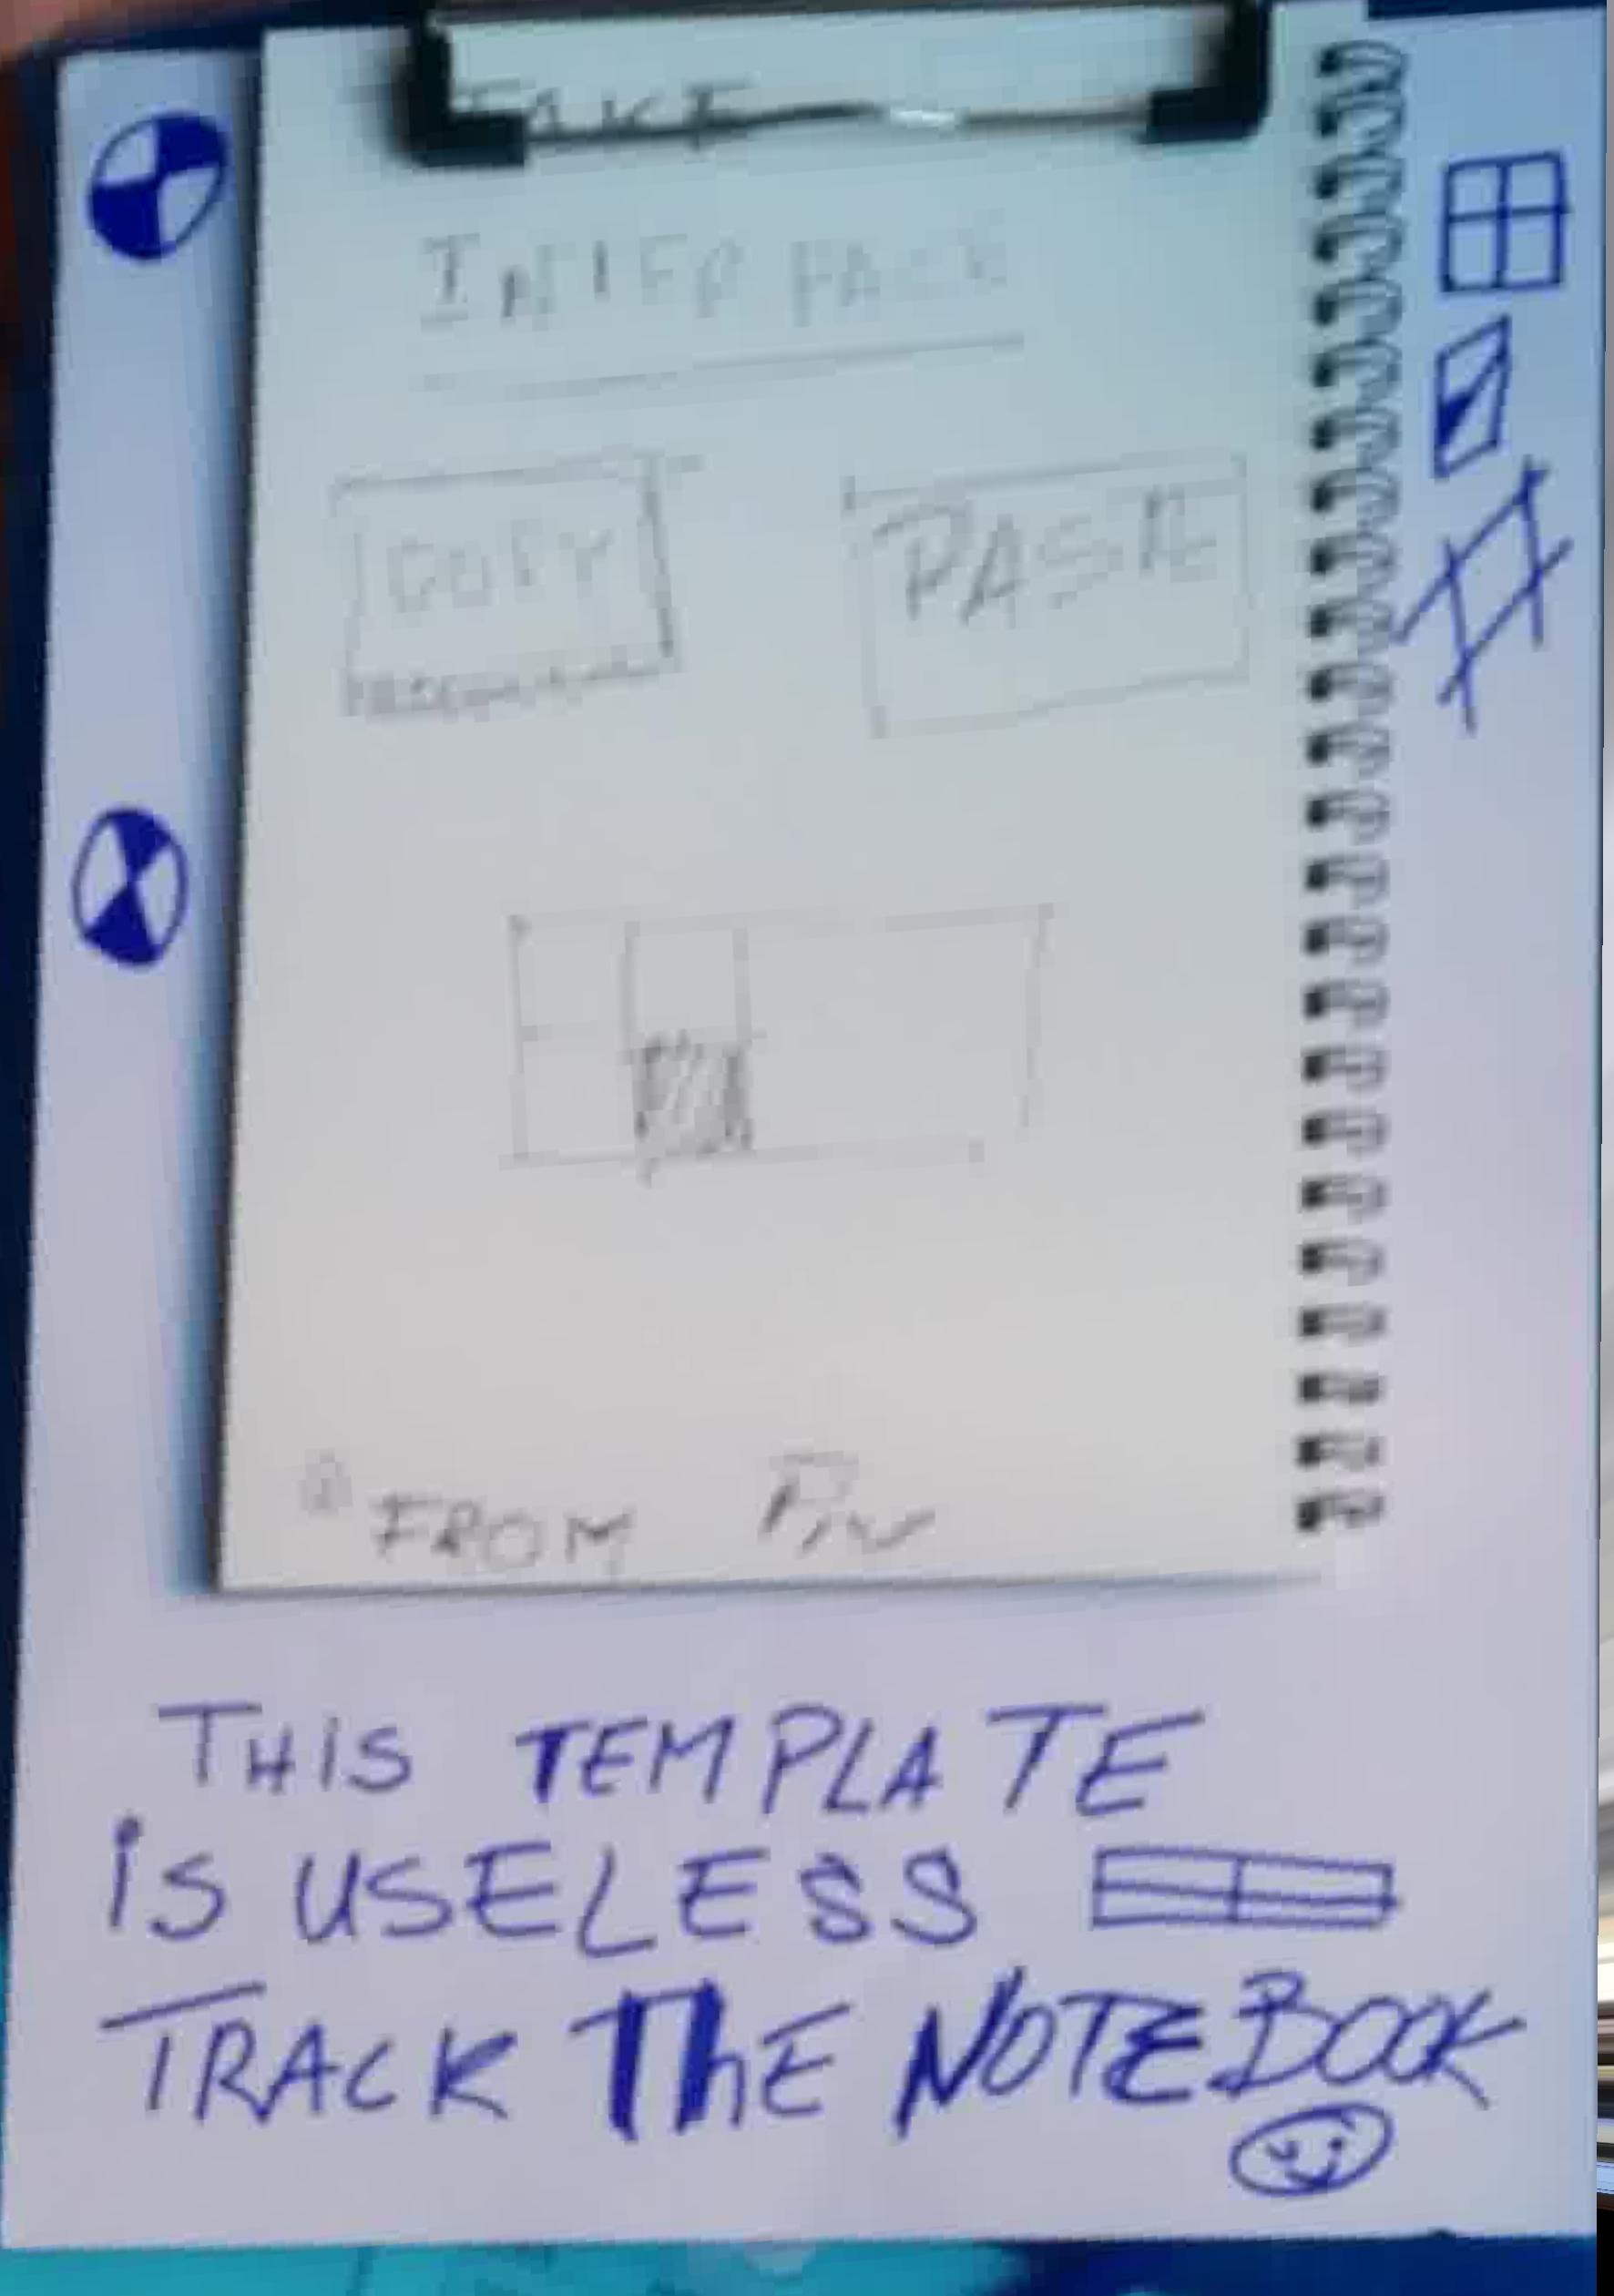 FAKE
INTERFACE
COPY PASTE
FROM
THiS TEMPLATE
iS USELESS
TRACK ThE NOTEBOOK